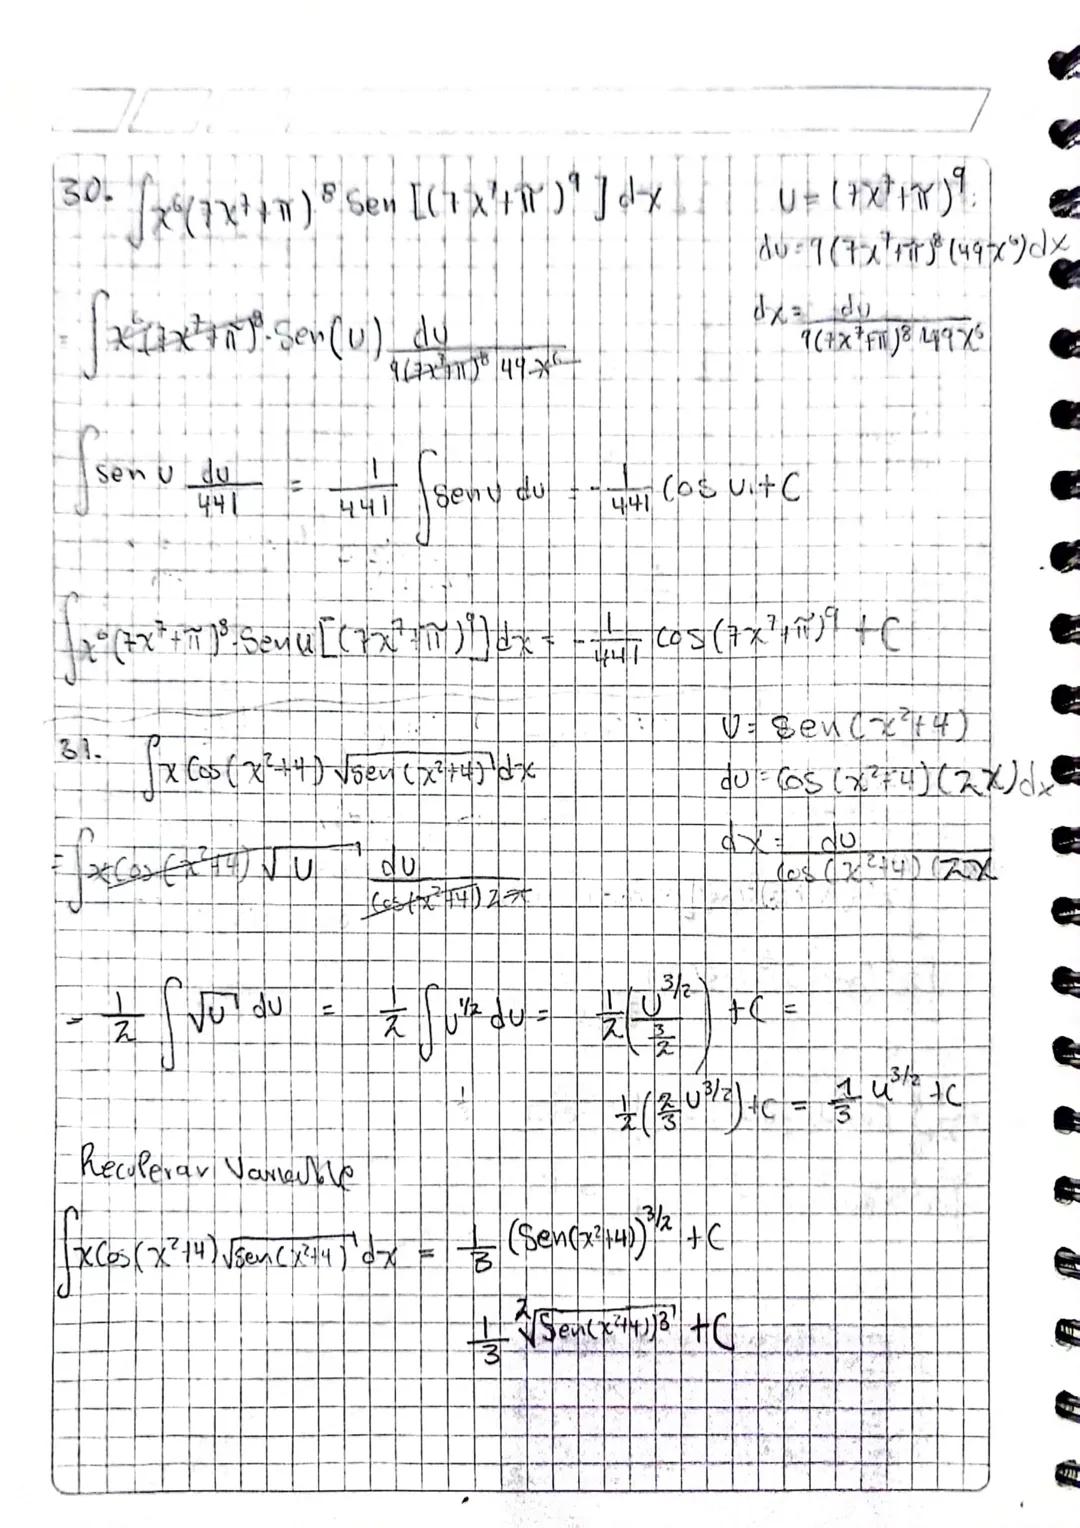 30. ∫x⁶(7x⁷+π)⁸ Sen [(7x⁷+π)⁹] dx
U = (7x⁷+π)⁹
du = 9(7x⁷+π)⁸(49x⁶)dx
dx = du / 9(7x⁷+π)⁸ 49x⁶
= ∫x⁶(7x⁷+π)⁸·Sen(U) du / 9(7x⁷+π)⁸ 49x⁶
∫sen u du/441 = 1/441 ∫sen u du = -1/441 Cos u + C
∫x⁶(7x⁷+π)⁸·Sen u[(7x⁷+π)⁹]dx = -1/441 cos(7x⁷+π)⁹ + C
31. ∫x Cos(x²+4) √sen(x²+4) dx
U = Sen(x²+4)
du = Cos(x²+4)(2x)dx
dx = du / Cos(x²+4)(2x
= ∫x Cos(x²+4) √U du / Cos(x²+4)2x
= 1/2 ∫√U du = 1/2 ∫U^1/2 du = 1/2 (U^3/2 / 3/2) + C =
1/2 (2/3 U^3/2) + C = 1/3 u^3/2 + C
Recuperar Variable
∫x Cos(x²+4) √sen(x²+4) dx = 1/3 (Sen(x²+4))^3/2 + C
1/3 ²√Sen(x²+4))³ + C